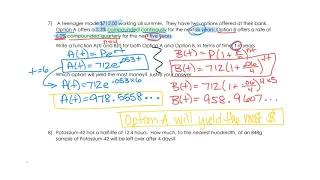 7) A teenager made $712.00 working all summer. They have two options offered at their bank.
Option A offers a 5.3% compounded continuously for the next six years. Option B offers a rate of
compounded quarterly for the next five years.
Write a function A(t) and B(t) for both Option A and Option B, in terms of time t in years
A(t) = Pe^rt
t=6
A(t) = 712e^.053t
B(t) = 712(1+
Which option will yield the most money? Justify your answer.
A(t) = 712e^.053×6
A(t) = 978.5558...
B(t) = 958.9607...
Option A will yield the most $
8) Potassium-42 has a half-life of 12.4 hours. How much, to the nearest hundredth, of an 848g
sample of Potassium-42 will be left over after 4 days?